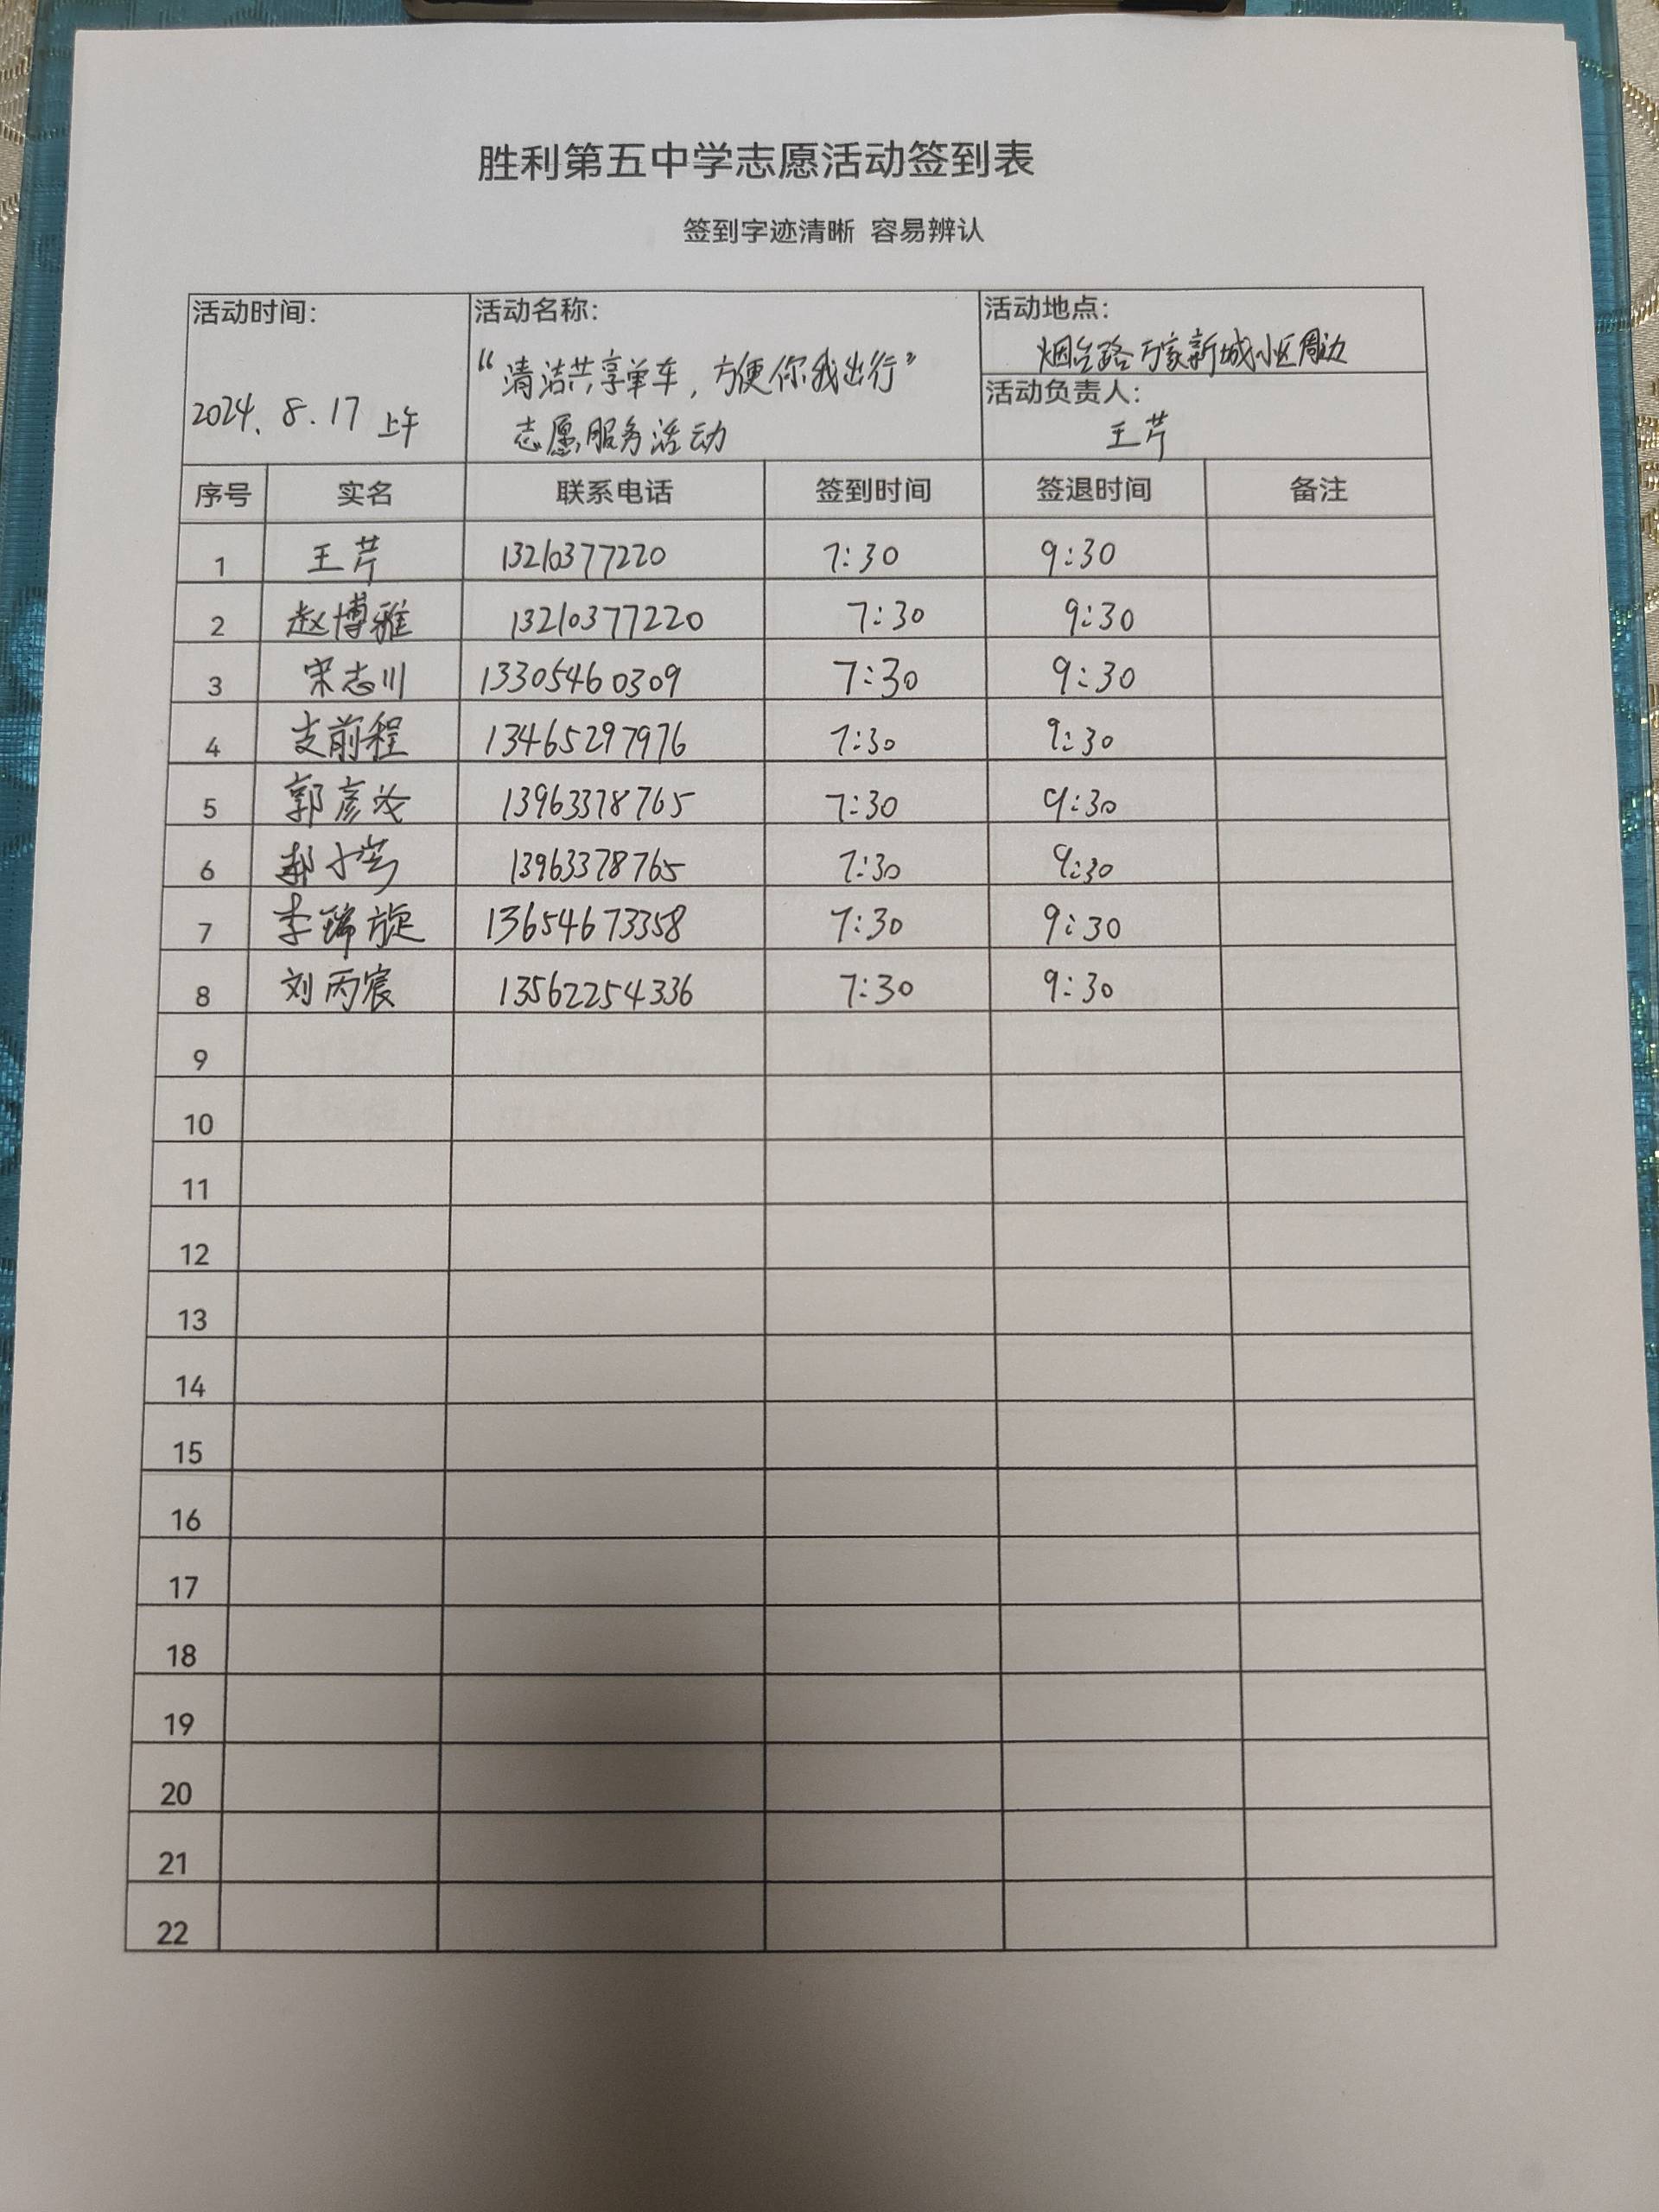 胜利第五中学志愿活动签到表
签到字迹清晰 容易辨认
活动时间: 活动名称: 活动地点:
烟台路万家新城小区周边
“清洁共享单车，方便你我出行”
活动负责人:
2024.8.17 上午 志愿服务活动 王芹
序号 实名 联系电话 签到时间 签退时间 备注
1 王芹 13210377220 7:30 9:30
2 赵博雅 13210377220 7:30 9:30
3 宋志川 13305460309 7:30 9:30
4 支前程 13465297976 7:30 9:30
5 郭彦 13963378765 7:30 9:30
6 13963378765 7:30 9:30
7 李瑞旋 13654673358 7:30 9:30
8 刘丙宸 13562254336 7:30 9:30
9
10
11
12
13
14
15
16
17
18
19
20
21
22